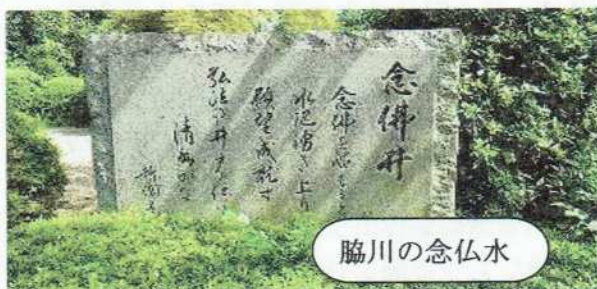 念佛井
念佛を
水泡涌き上り
願望成就す
弘法の井戸
清め
脇川の念仏水